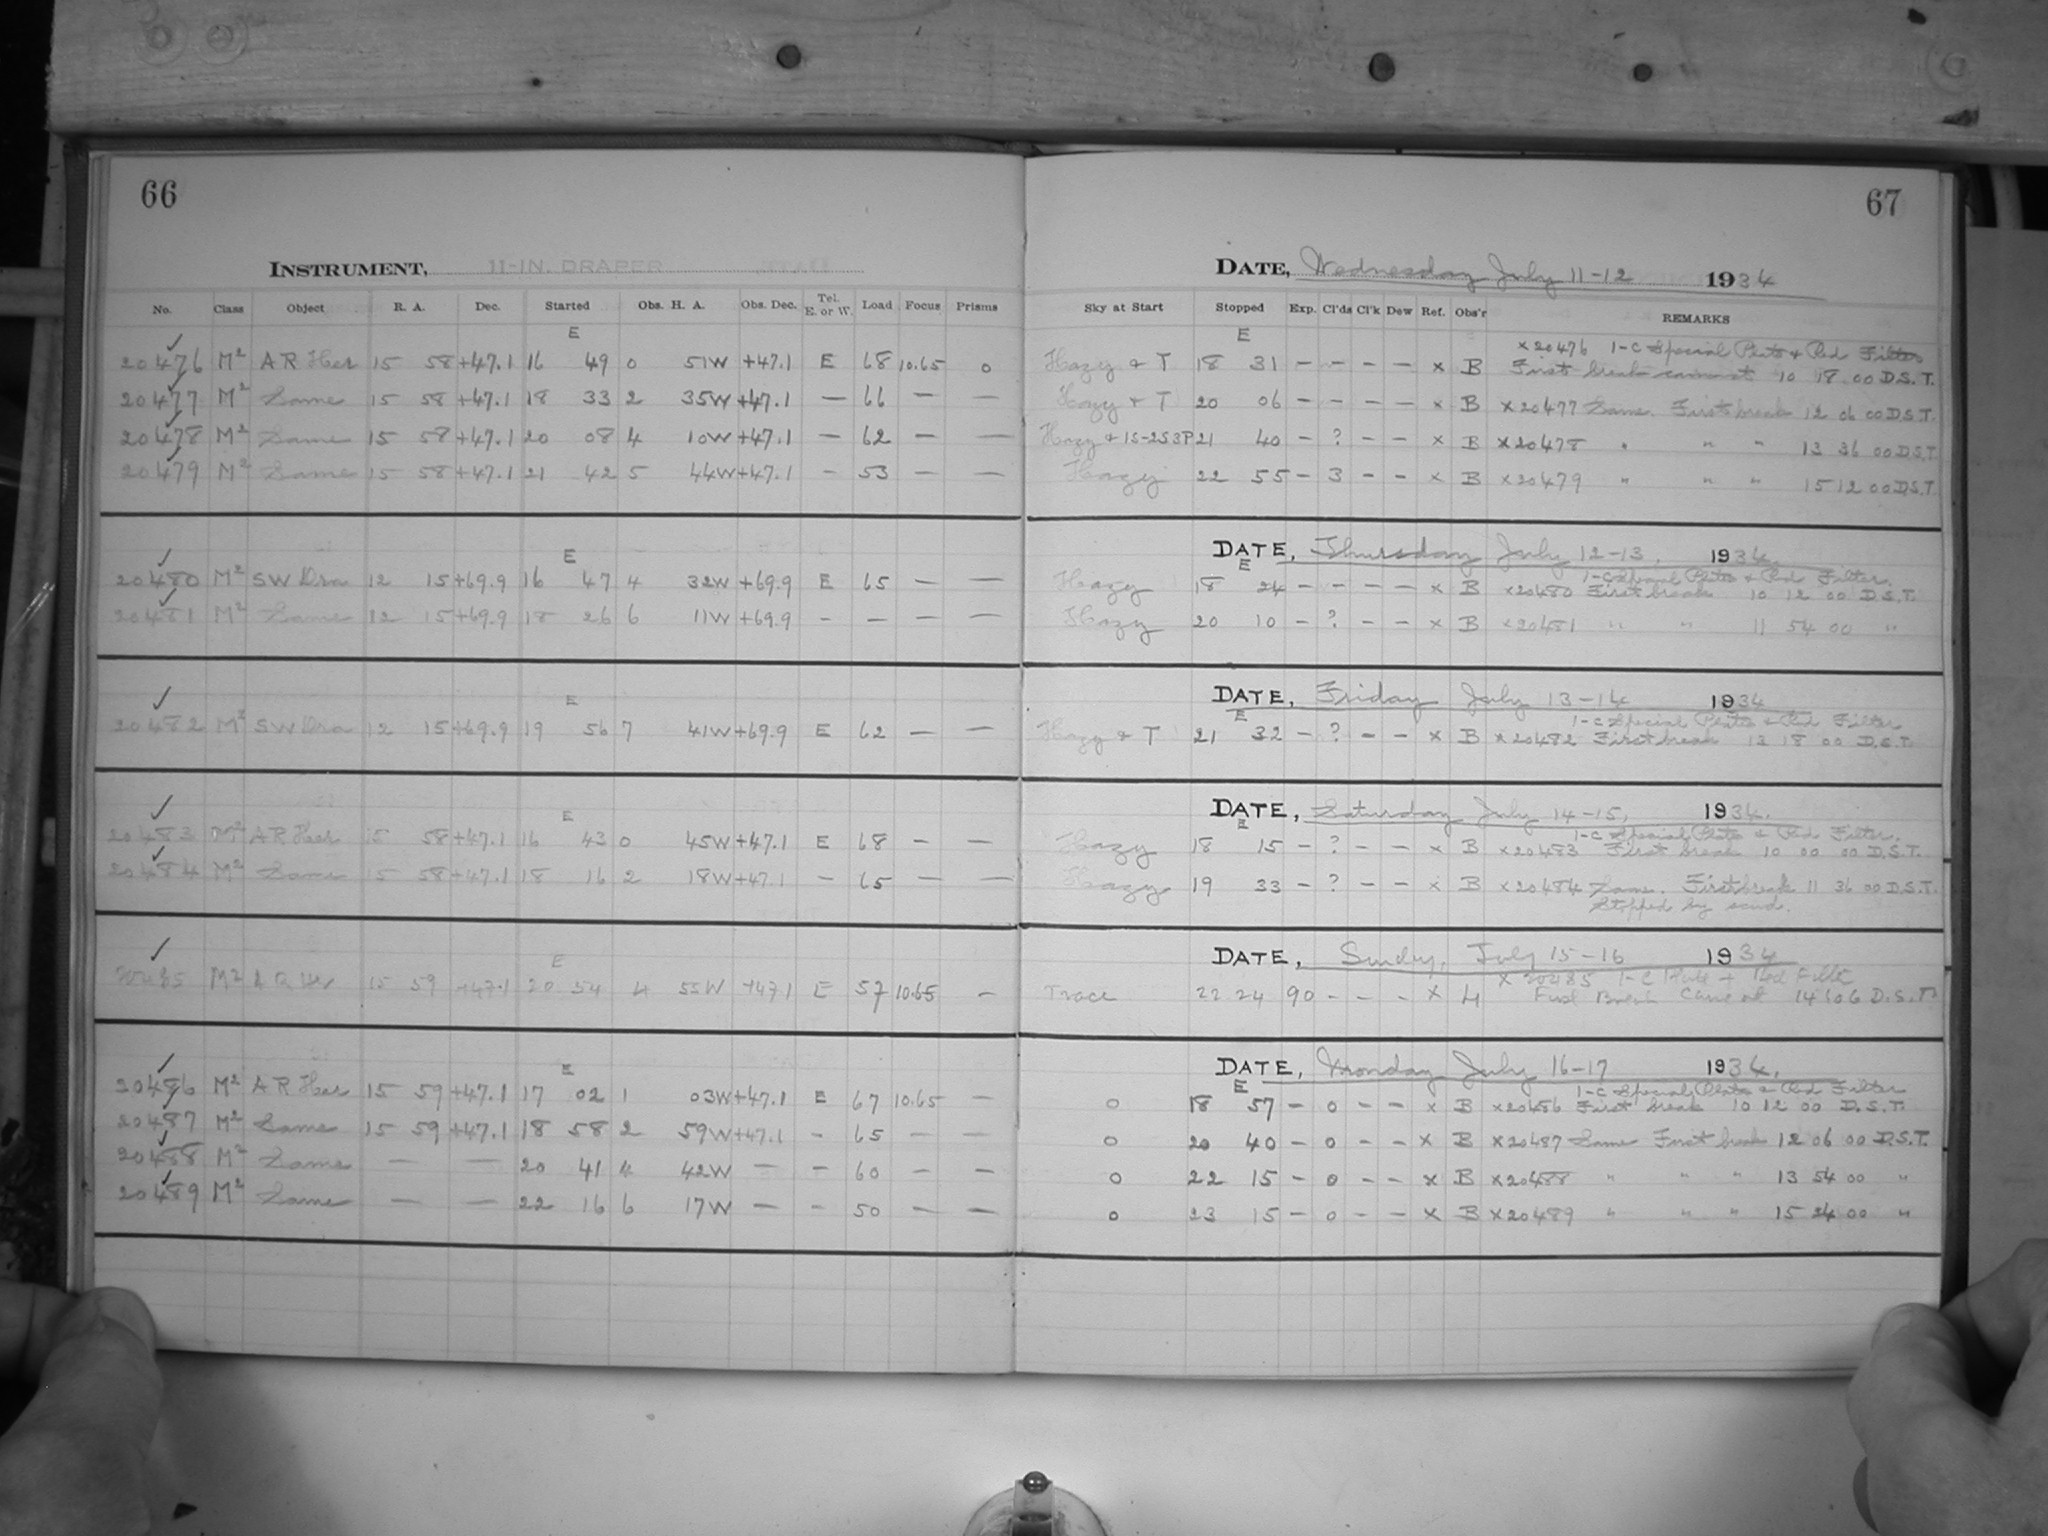 66
INSTRUMENT, 11-IN. DRAPER
No. Class Object R. A. Dec. Started Obs. H. A. Obs. Dec. Tel. E. or W. Load Focus Prisms
E
20476 M2 AR Her 15 58 +47.1 16 49 0 51W +47.1 E 68 10.65 0
20477 M2 Same 15 58 +47.1 18 33 2 35W +47.1 — 66 — —
20478 M2 Same 15 58 +47.1 20 08 4 10W +47.1 — 62 — —
20479 M2 Same 15 58 +47.1 21 42 5 44W +47.1 - 53 — —
E
20480 M2 SW Dra 12 15 +69.9 16 47 4 32W +69.9 E 65 — —
20481 M2 Same 12 15 +69.9 18 26 6 11W +69.9 - - — —
E
20482 M2 SW Dra 12 15 +69.9 19 56 7 41W +69.9 E 62 — —
E
20483 M2 AR Her 15 58 +47.1 16 43 0 45W +47.1 E 68 — —
20484 M2 Same 15 58 +47.1 18 16 2 18W +47.1 - 65 — —
E
M2 15 59 +47.1 20 54 4 55W +47.1 E 57 10.65 —
E
20486 M2 AR Her 15 59 +47.1 17 02 1 03W +47.1 E 67 10.65 —
20487 M2 Same 15 59 +47.1 18 58 2 59W +47.1 - 65 — —
20488 M2 Same — — 20 41 4 42W — - 60 — —
20489 M2 Same — — 22 16 6 17W — - 50 — —
67
DATE, Wednesday July 11-12 1934
Sky at Start Stopped Exp. Cl'ds Cl'k Dew Ref. Obs'r REMARKS
E
x20476 1-C Special Plate & Red Filter
Hazy & T 18 31 - - - - x B First break came at 10 18 00 D.S.T.
Hazy & T 20 06 - - - - x B x20477 Same. First break 12 06 00 D.S.T.
Hazy & 1S-2S3P 21 40 - ? - - x B x20478 " " " 13 36 00 D.S.T.
Hazy 22 55 - 3 - - x B x20479 " " " 15 12 00 D.S.T.
DATE, Thursday July 12-13, 1934
E 1-C Special Plate & Red Filter.
Hazy 18 24 - - - - x B x20480 First break 10 12 00 D.S.T.
Hazy 20 10 - ? - - x B x20481 " " 11 54 00 "
DATE, Friday July 13-14 1934
E 1-C Special Plate & Red Filter
Hazy & T 21 32 - ? - - x B x20482 First break 13 18 00 D.S.T.
DATE, Saturday July 14-15, 1934.
E 1-C Special Plate & Red Filter.
Hazy 18 15 - ? - - x B x20483 First break 10 00 00 D.S.T.
Hazy 19 33 - ? - - x B x20484 Same. First break 11 36 00 D.S.T.
Stopped by scud.
DATE, Sunday, July 15-16 1934
x 20485 1-C Plate + Red Filter
Trace 22 24 90 - - - x H First Break Came at 14 606 D.S.T.
DATE, Monday July 16-17 1934.
E 1-C Special Plate & Red Filter
0 18 57 - 0 - - x B x20486 First break 10 12 00 D.S.T.
0 20 40 - 0 - - x B x20487 Same First break 12 06 00 D.S.T.
0 22 15 - 0 - - x B x20488 " " " 13 54 00 "
0 23 15 - 0 - - x B x20489 " " " 15 24 00 "